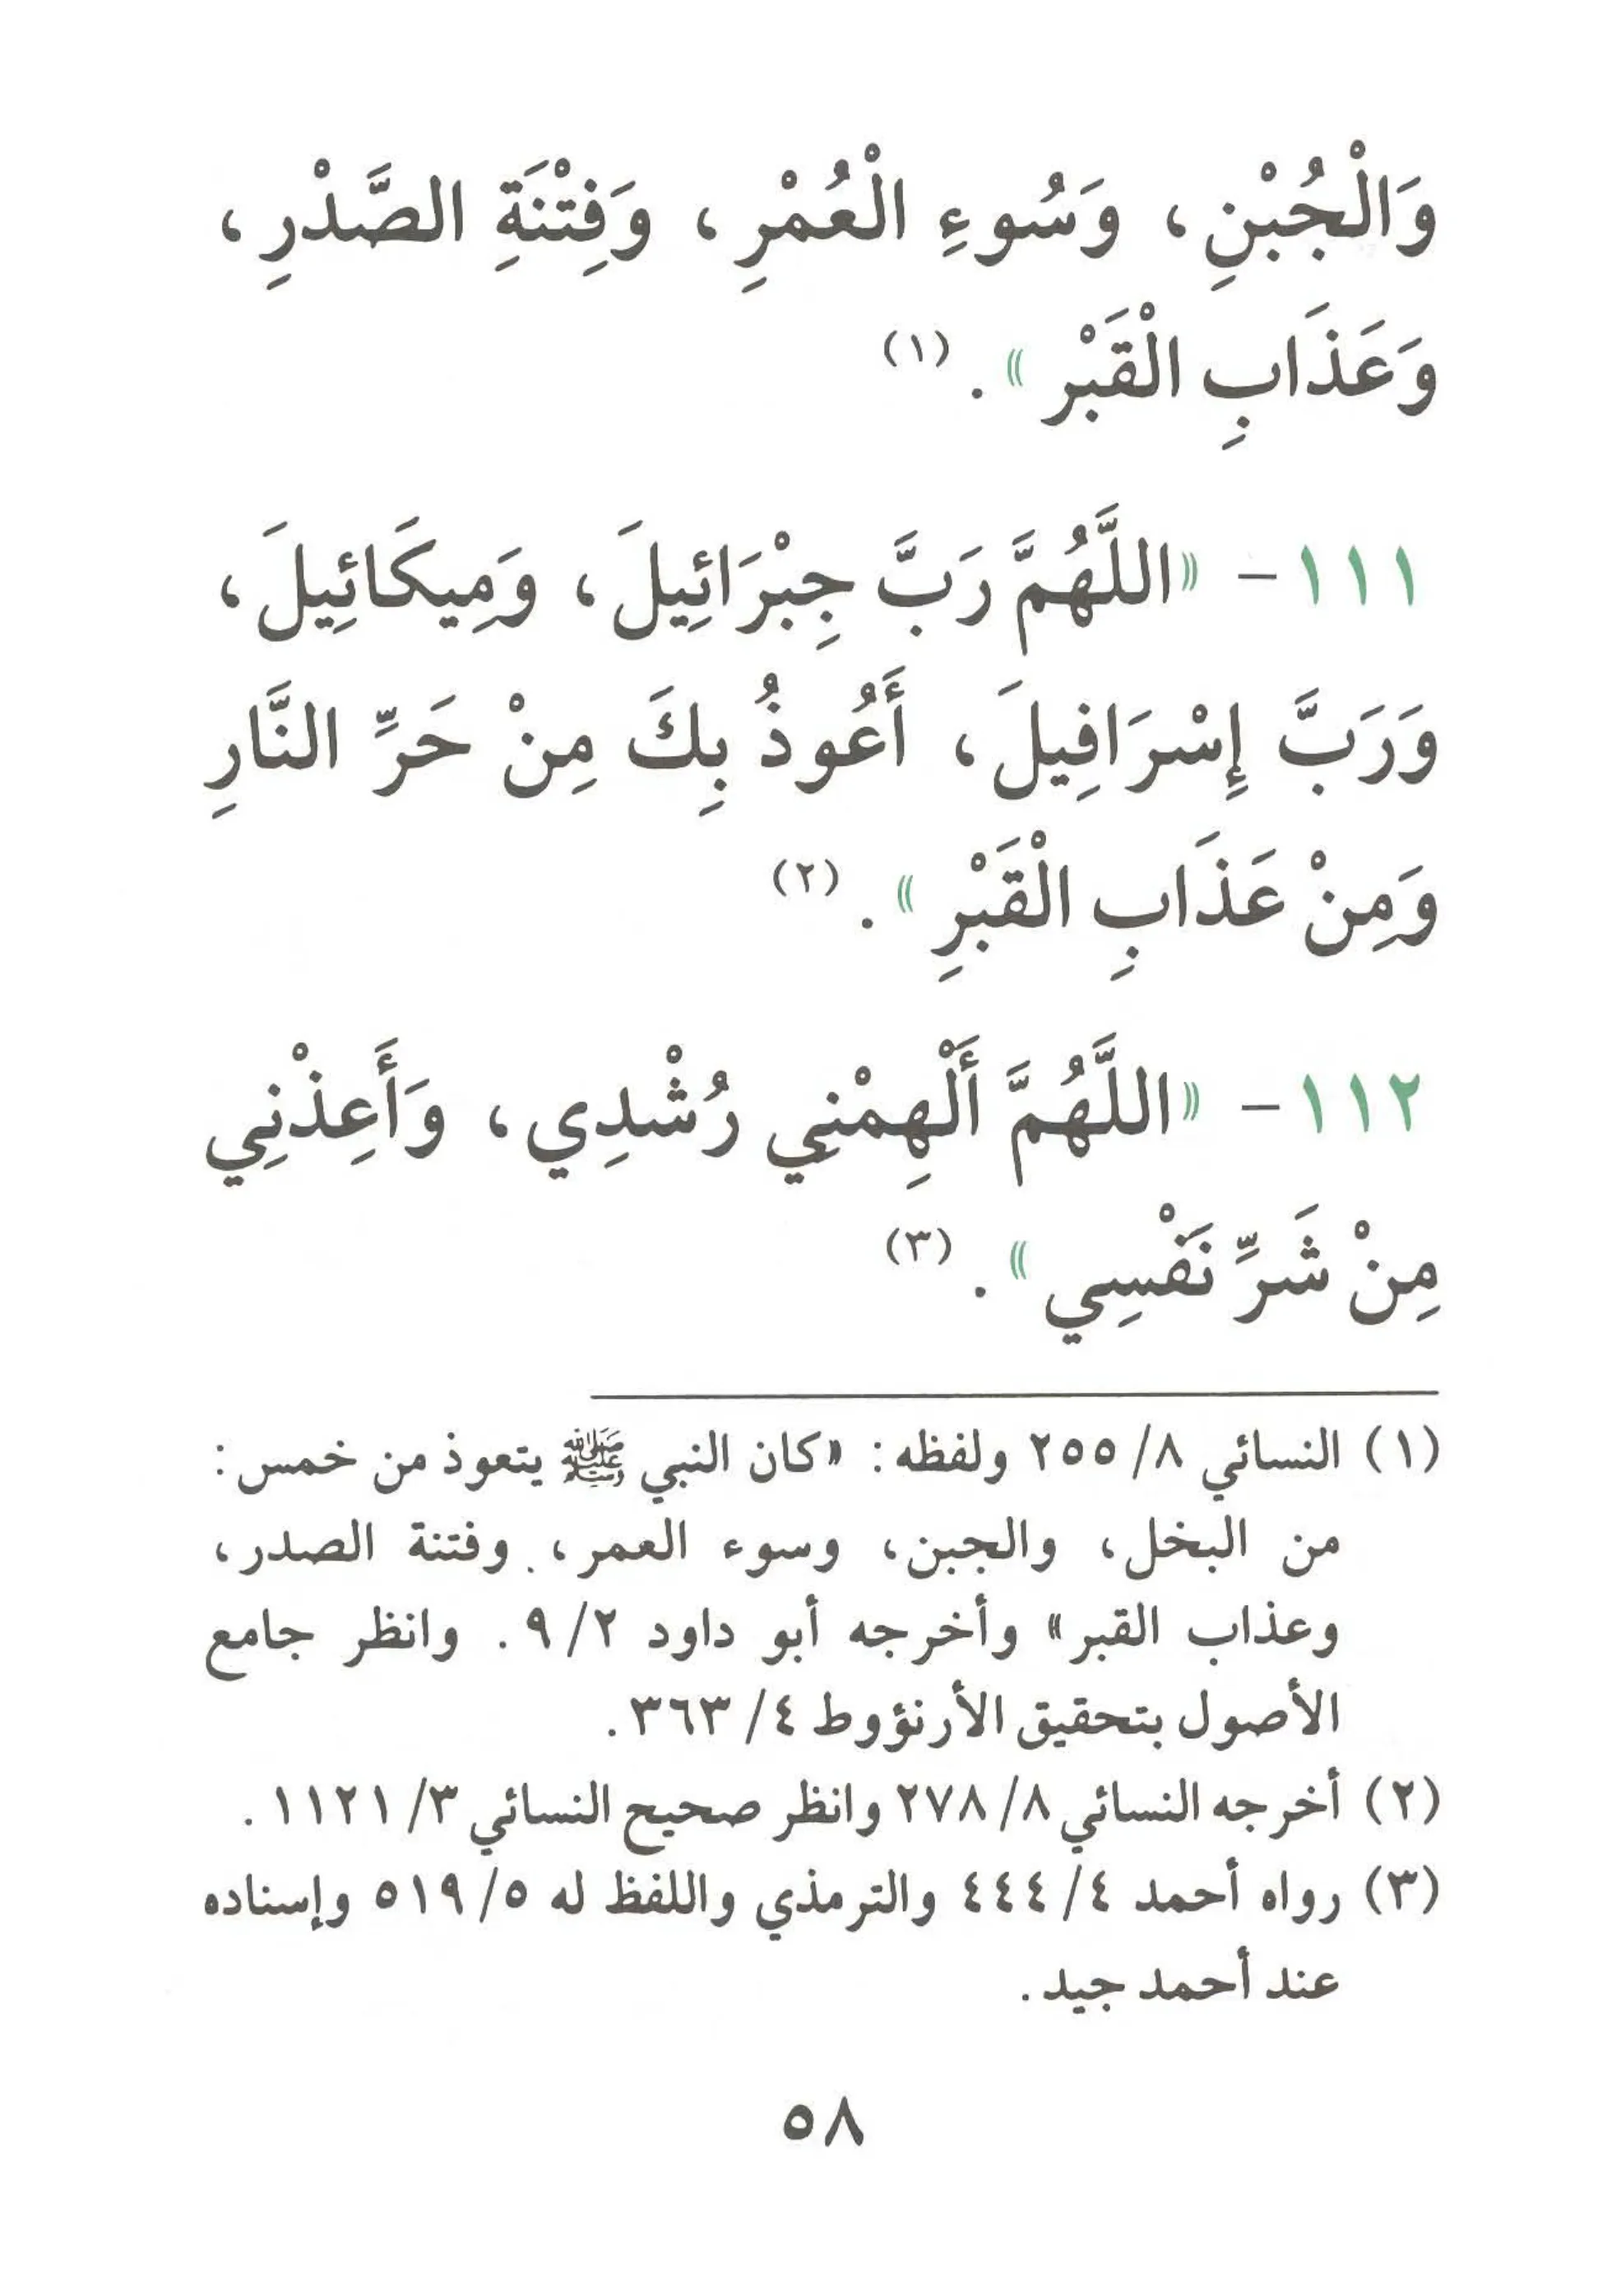 وَالْجُبْنِ، وَسُوءِ الْعُمْرِ، وَفِتْنَةِ الصَّدْرِ،
وَعَذَابِ الْقَبْر». (١)
١١١- «اللَّهُمَّ رَبَّ جِبْرَائِيلَ، وَمِيكَائِيلَ،
وَرَبَّ إِسْرَافِيلَ، أَعُوذُ بِكَ مِنْ حَرِّ النَّارِ
وَمِنْ عَذَابِ الْقَبْرِ». (٢)
١١٢- «اللَّهُمَّ أَلْهِمْنِي رُشْدِي، وَأَعِذْنِي
مِنْ شَرِّ نَفْسِي». (٣)
(١) النسائي ٨/ ٢٥٥ ولفظه: «كان النبي ﷺ يتعوذ من خمس:
من البخل، والجبن، وسوء العمر، وفتنة الصدر،
وعذاب القبر» وأخرجه أبو داود ٢/ ٩. وانظر جامع
الأصول بتحقيق الأرنؤوط ٤/ ٣٦٣.
(٢) أخرجه النسائي ٨/ ٢٧٨ وانظر صحيح النسائي ٣/ ١١٢١.
(٣) رواه أحمد ٤/ ٤٤٤ والترمذي واللفظ له ٥/ ٥١٩ وإسناده
عند أحمد جيد.
٥٨